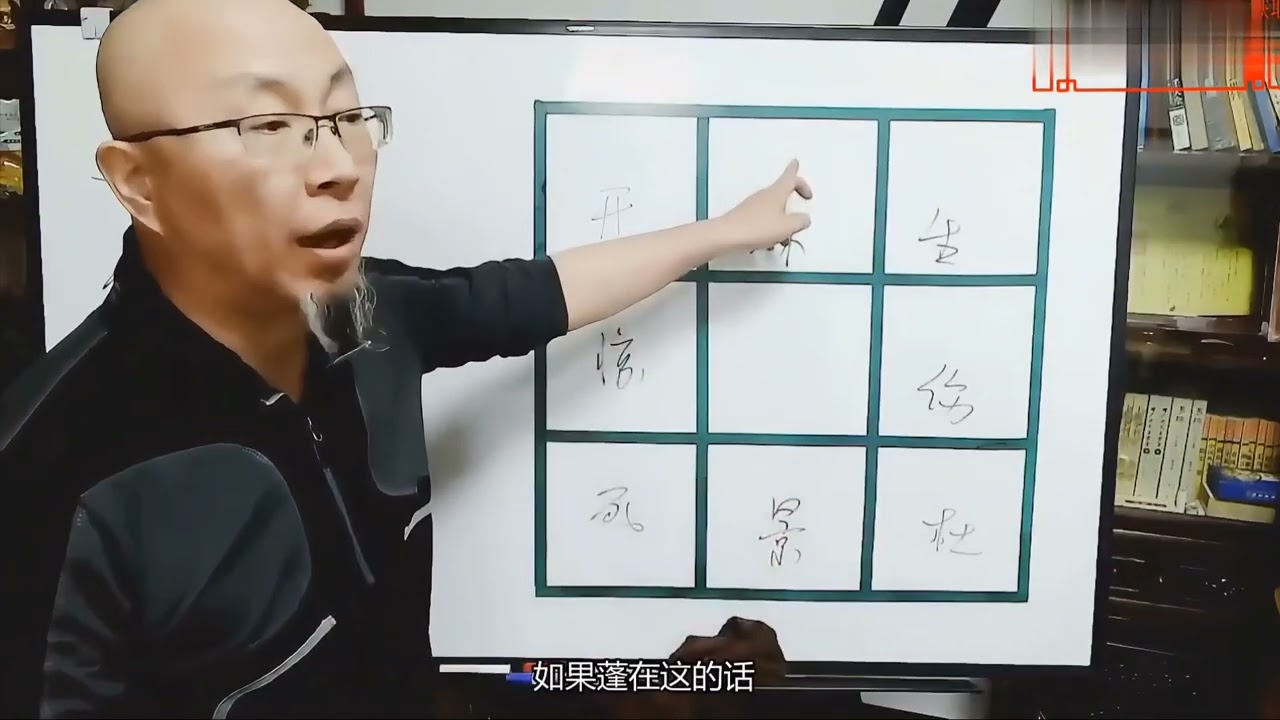 开 生
惊 伤
死 景 杜
如果蓬在这的话